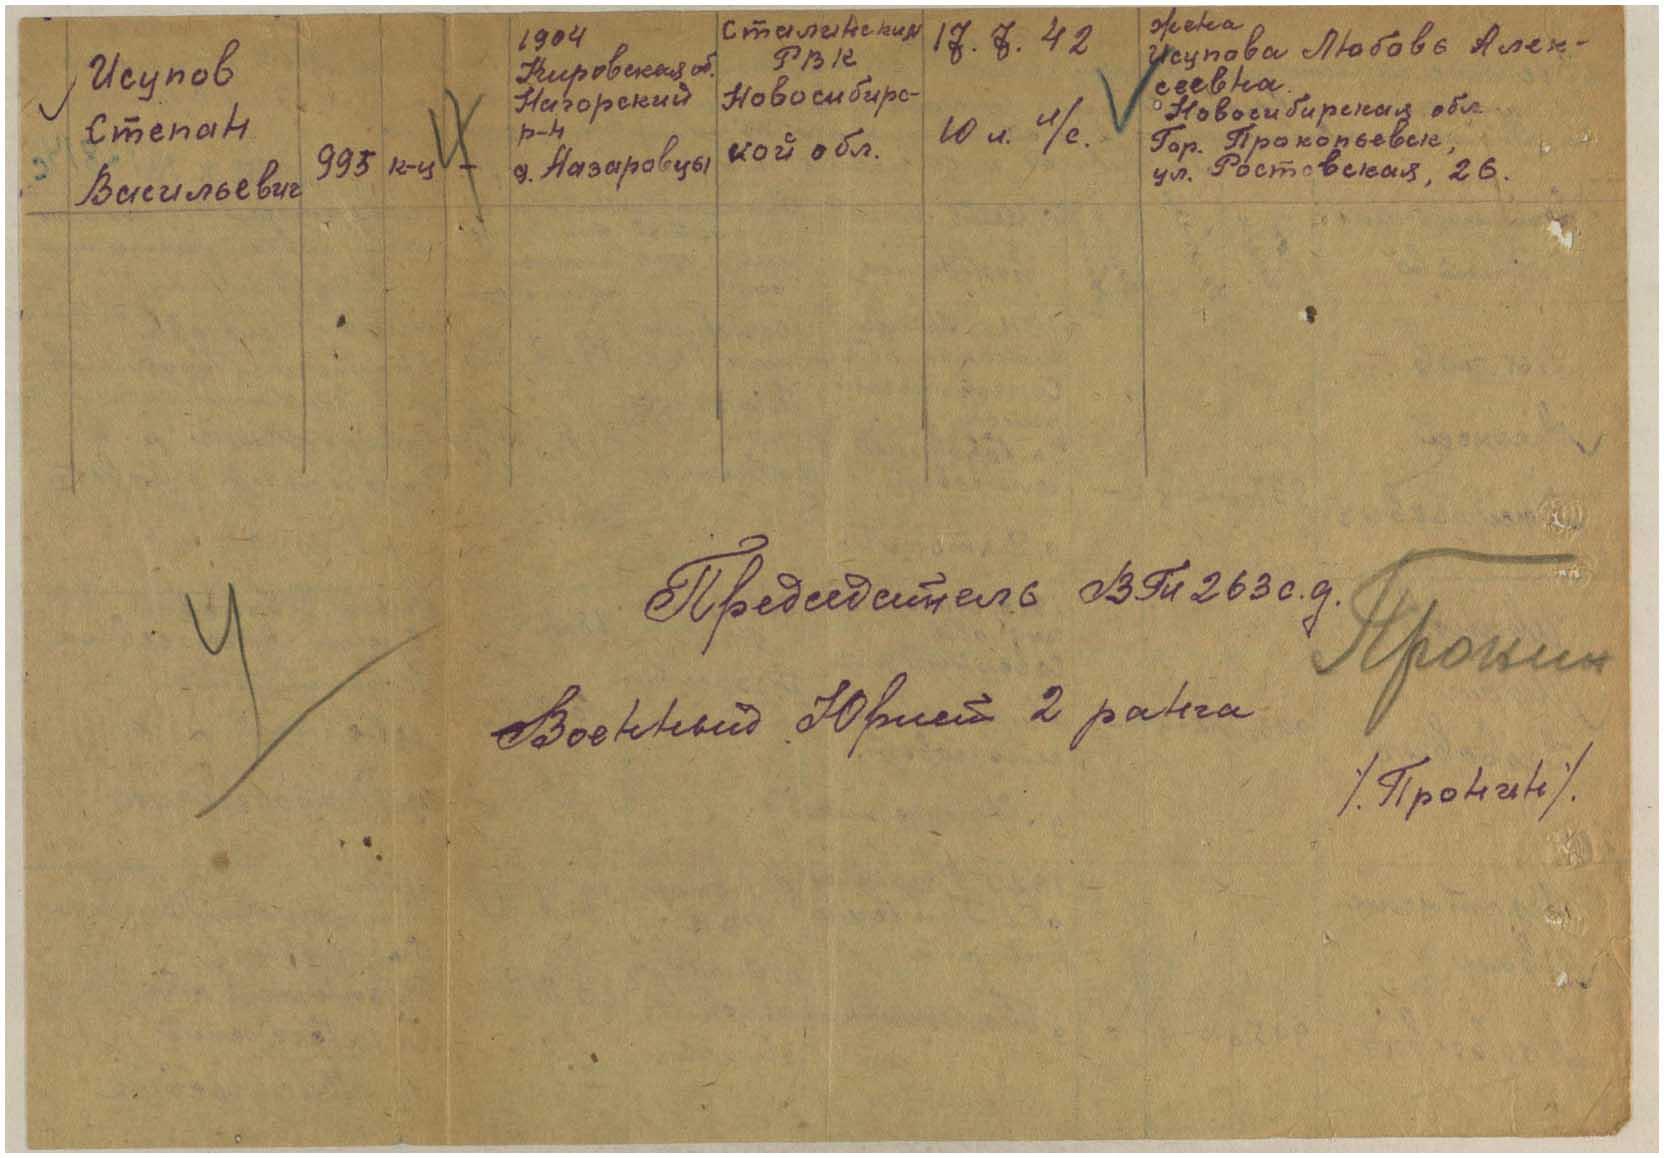 Исупов
Степан
Васильевич
995
к-ц
–
1904
Кировская об.
Нагорский
р-н
д. Назаровцы
Сталинский
РВК
Новосибирс-
кой обл.
17.7.42
10 л. л/с.
жена
Исупова Любовь Алек-
сеевна.
Новосибирская обл
Гор. Прокопьевск,
ул. Ростовская, 26.
Председатель ВТп 263 с.д.
Военный Юрист 2 ранга
Пронин
/.Пронин/.